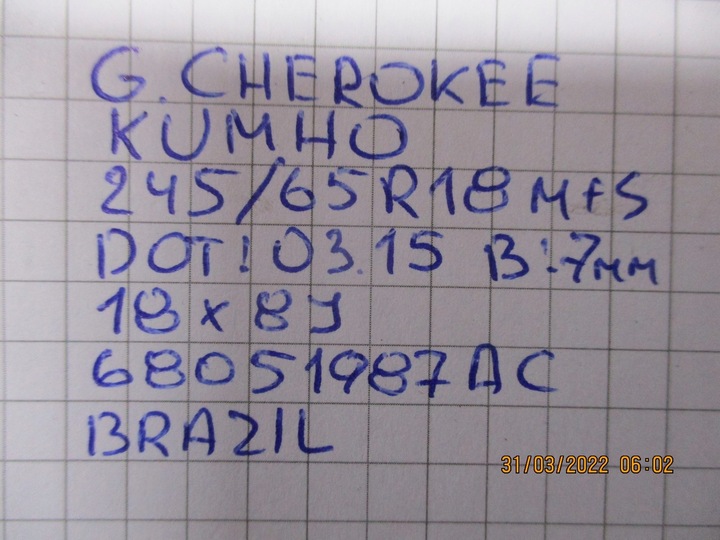 G. CHEROKEE
KUMHO
245/65R18 M+S
DOT: 03.15 B:7мм
18 x 8J
68051987AC
BRAZIL
31/03/2022 06:02